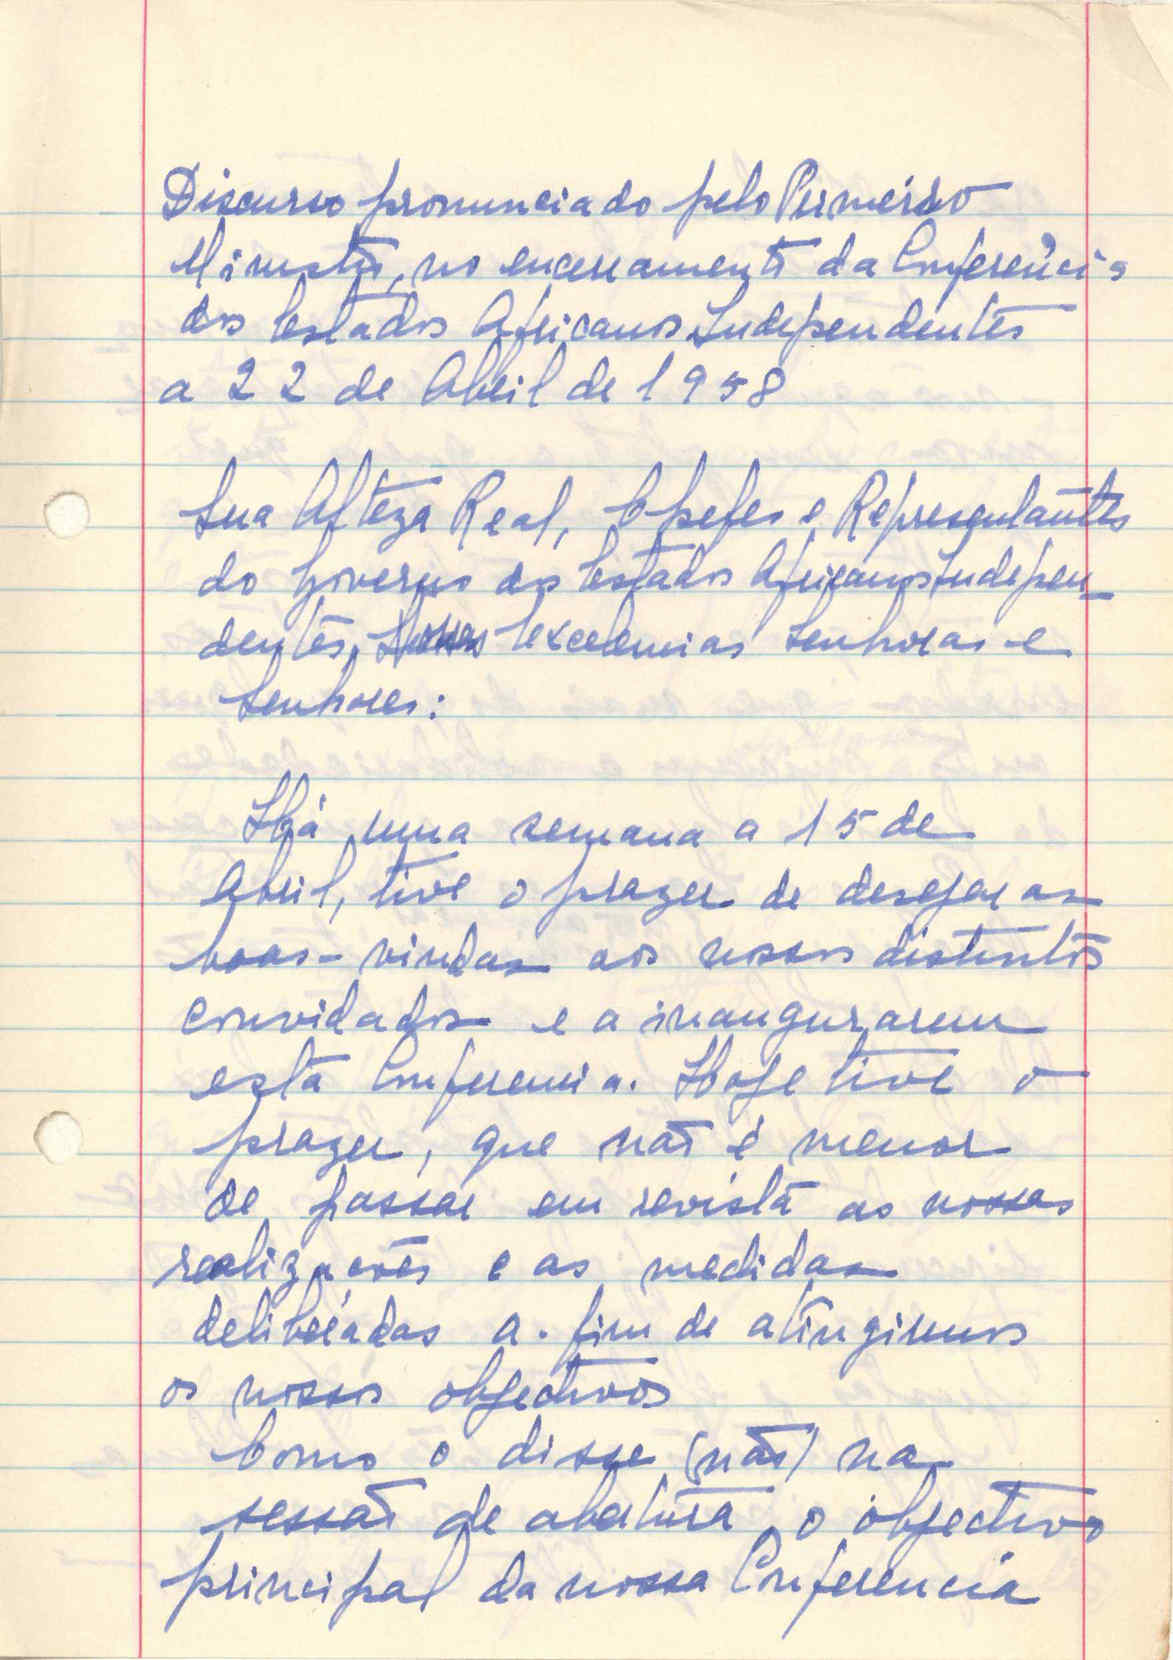 Discurso pronunciado pelo Primeiro
Ministro, no encerramento da Conferência
dos Estados Africanos Independentes
a 22 de Abril de 1958
Sua Alteza Real, Chefes e Representantes
do Governo dos Estados Africanos Indepen-
dentes, Excelencias Senhoras e
Senhores:
Há uma semana a 15 de
Abril, tive o prazer de desejar as
boas-vindas aos nossos distintos
convidados e a inaugurarem
esta Conferencia. Hoje tive o
prazer, que não é menor
de passar em revista as nossas
realizações e as medidas
deliberadas a fim de atingirmos
os nossos objectivos
Como o disse (não) na
sessão de abertura, o objectivo
principal da nossa Conferencia